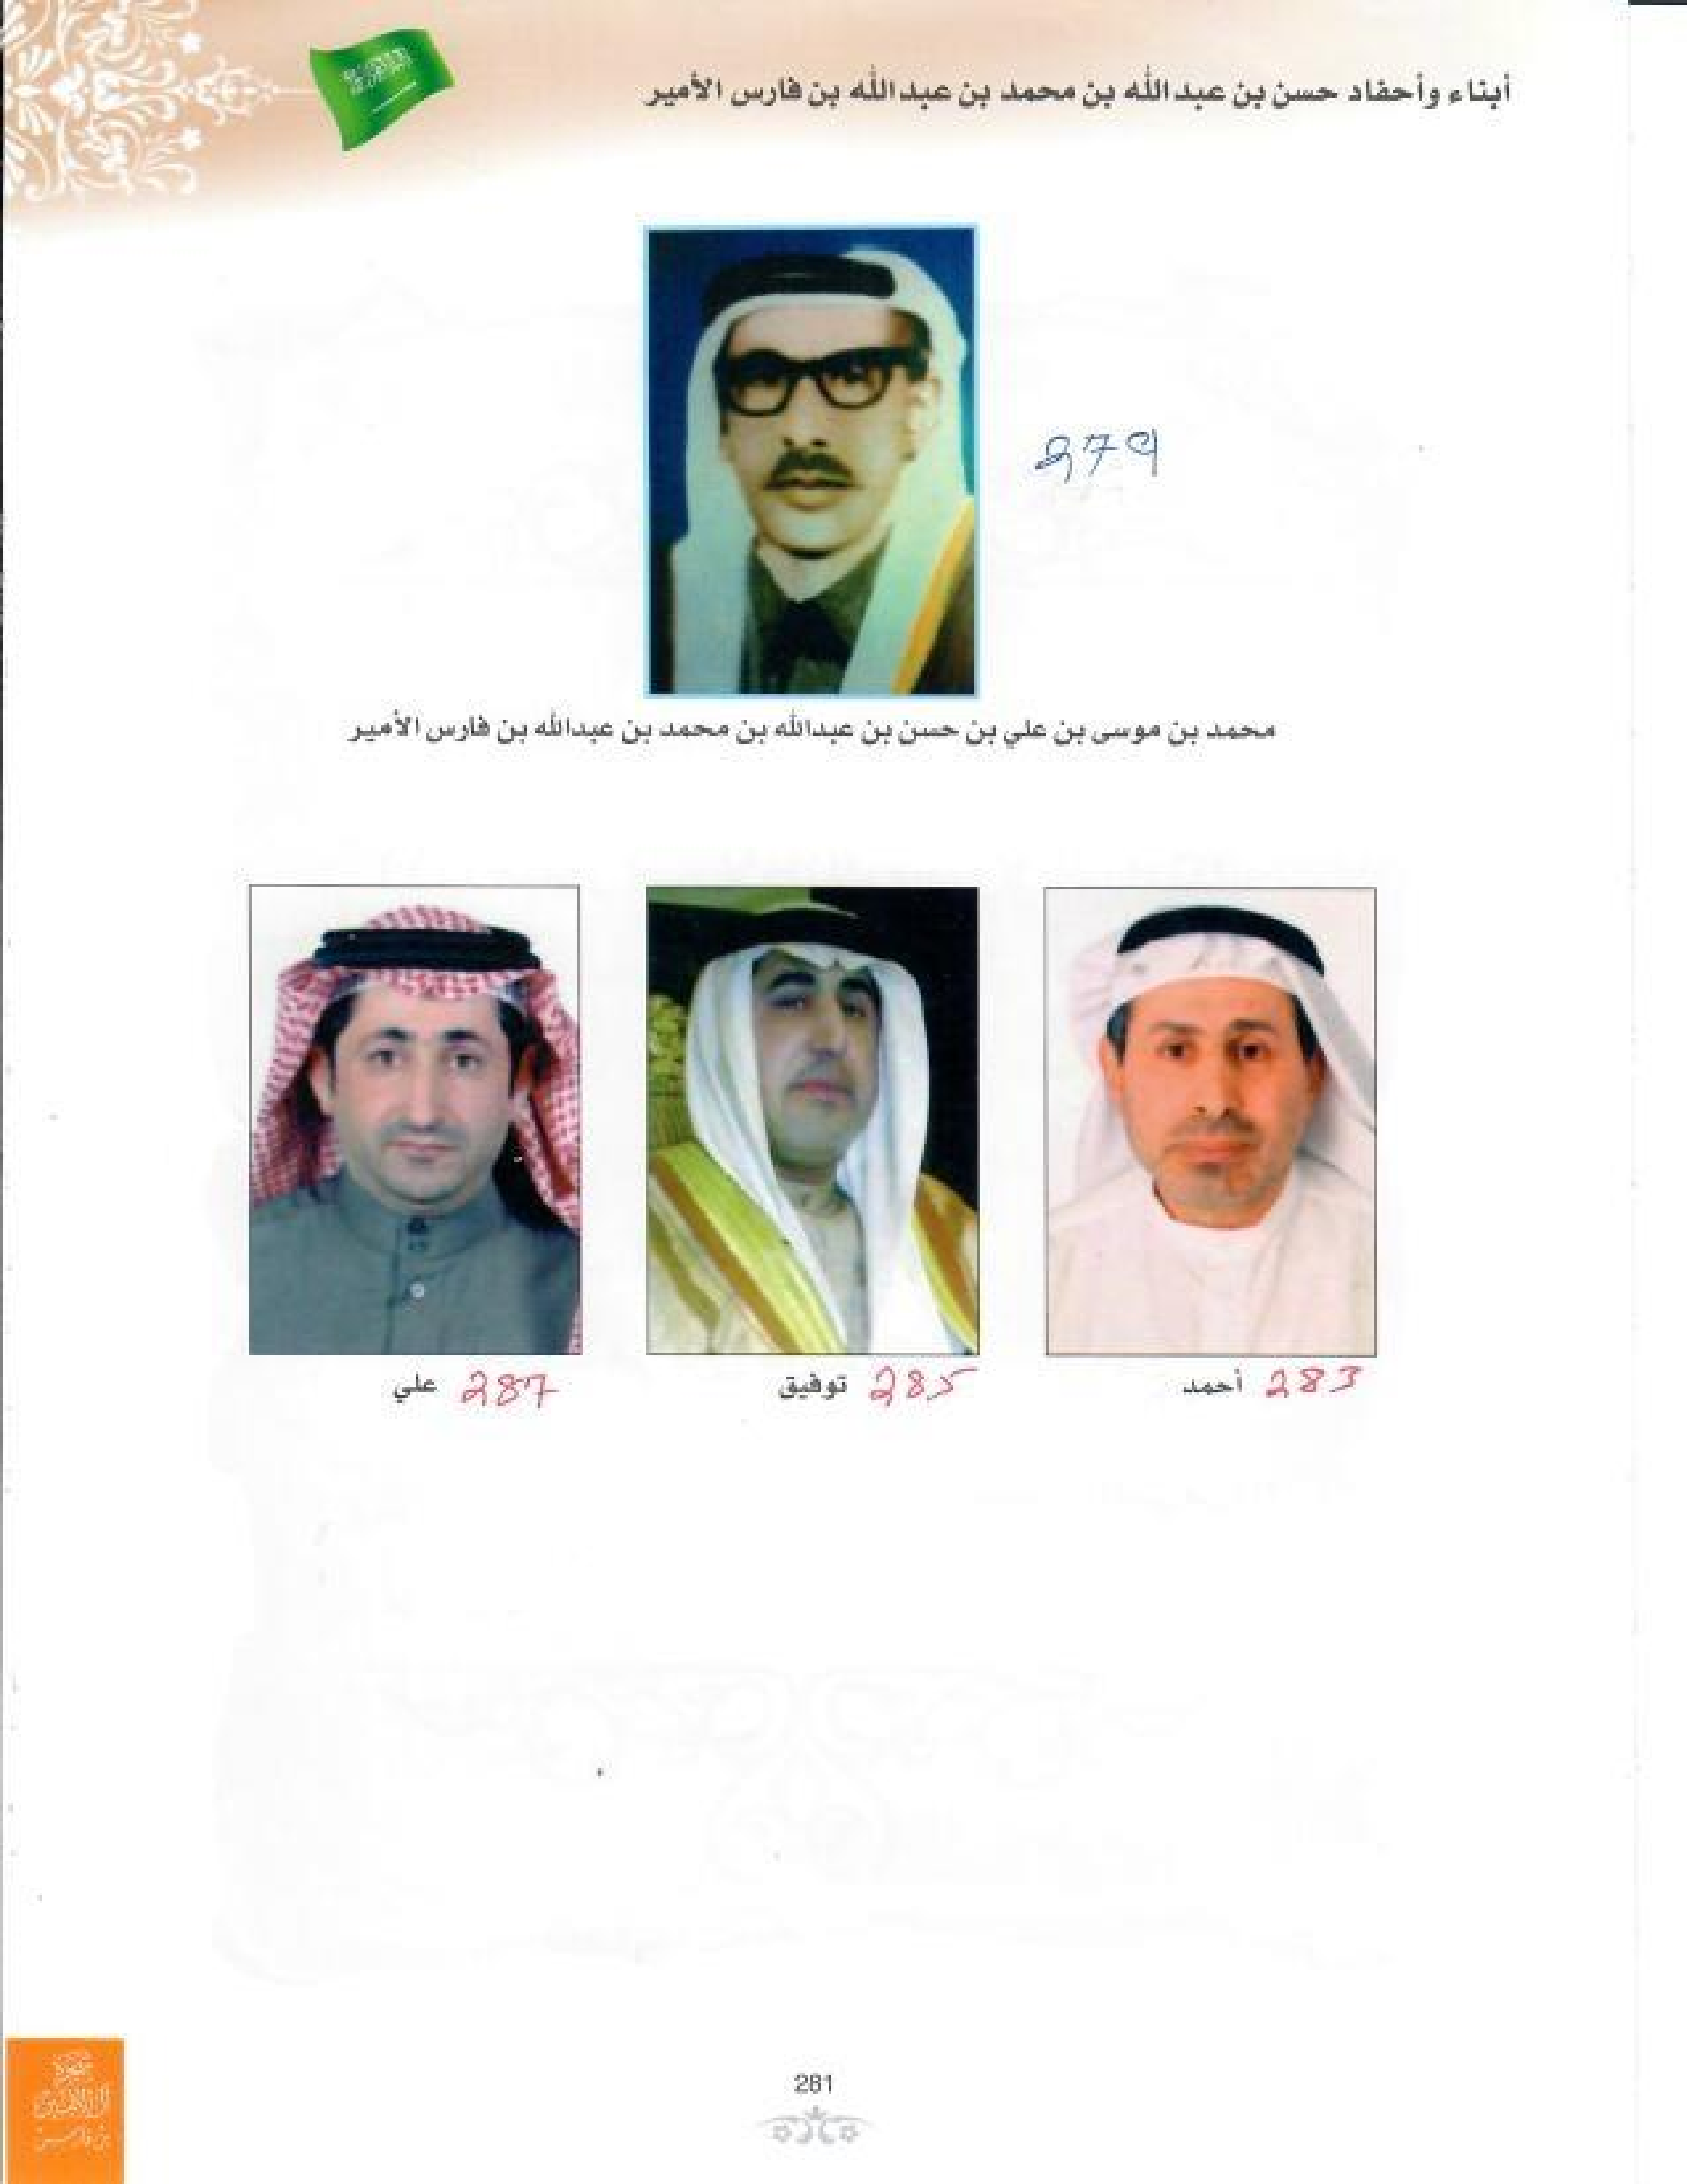 أبناء وأحفاد حسن بن عبدالله بن محمد بن عبدالله بن فارس الأمير
279
محمد بن موسى بن علي بن حسن بن عبدالله بن محمد بن عبدالله بن فارس الأمير
أحمد 283
توفيق 285
علي 287
281